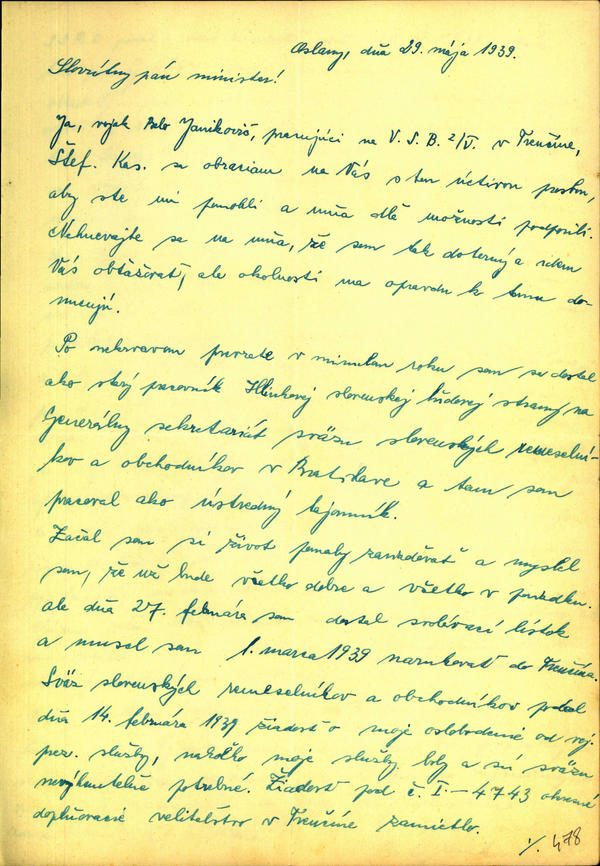 Oslany, dňa 29. mája 1939.
Slovútny pán minister!
Ja, vojak Palo Janikovič, pracujúci na V. S. B. 2/V. v Trenčíne,
Štef. Kas. sa obraciam na Vás s tou úctivou prosbou,
aby ste mi pomohli a mňa dľa možnosti podporili.
Nehnevajte sa na mňa, že som tak doterný a idem
Vás obťažovať, ale okolnosti ma opravdu k tomu do-
nucujú.
Po nekrvavom prevrate v minulom roku som sa dostal
ako starý pracovník Hlinkovej slovenskej ľudovej strany na
Generálny sekretariát sväzu slovenských remeselní-
kov a obchodníkov v Bratislave a tam som
pracoval ako ústredný tajomník.
Začal som si život pomaly zariaďovať a myslel
som, že už bude všetko dobre a všetko v poriadku.
ale dňa 27. februára som dostal svolávací lístok
a musel som 1. marca 1939 narukovať do Trenčína.
Sväz slovenských remeselníkov a obchodníkov podal
dňa 14. februára 1939 žiadosť o moje oslobodenie od voj.
prez. služby, nakoľko moje služby boly a sú sväzu
nevyhnutelne potrebné. Žiadosť pod č. I.-4743 okresné
doplňovacie veliteľstvo v Trenčíne zamietlo.
478